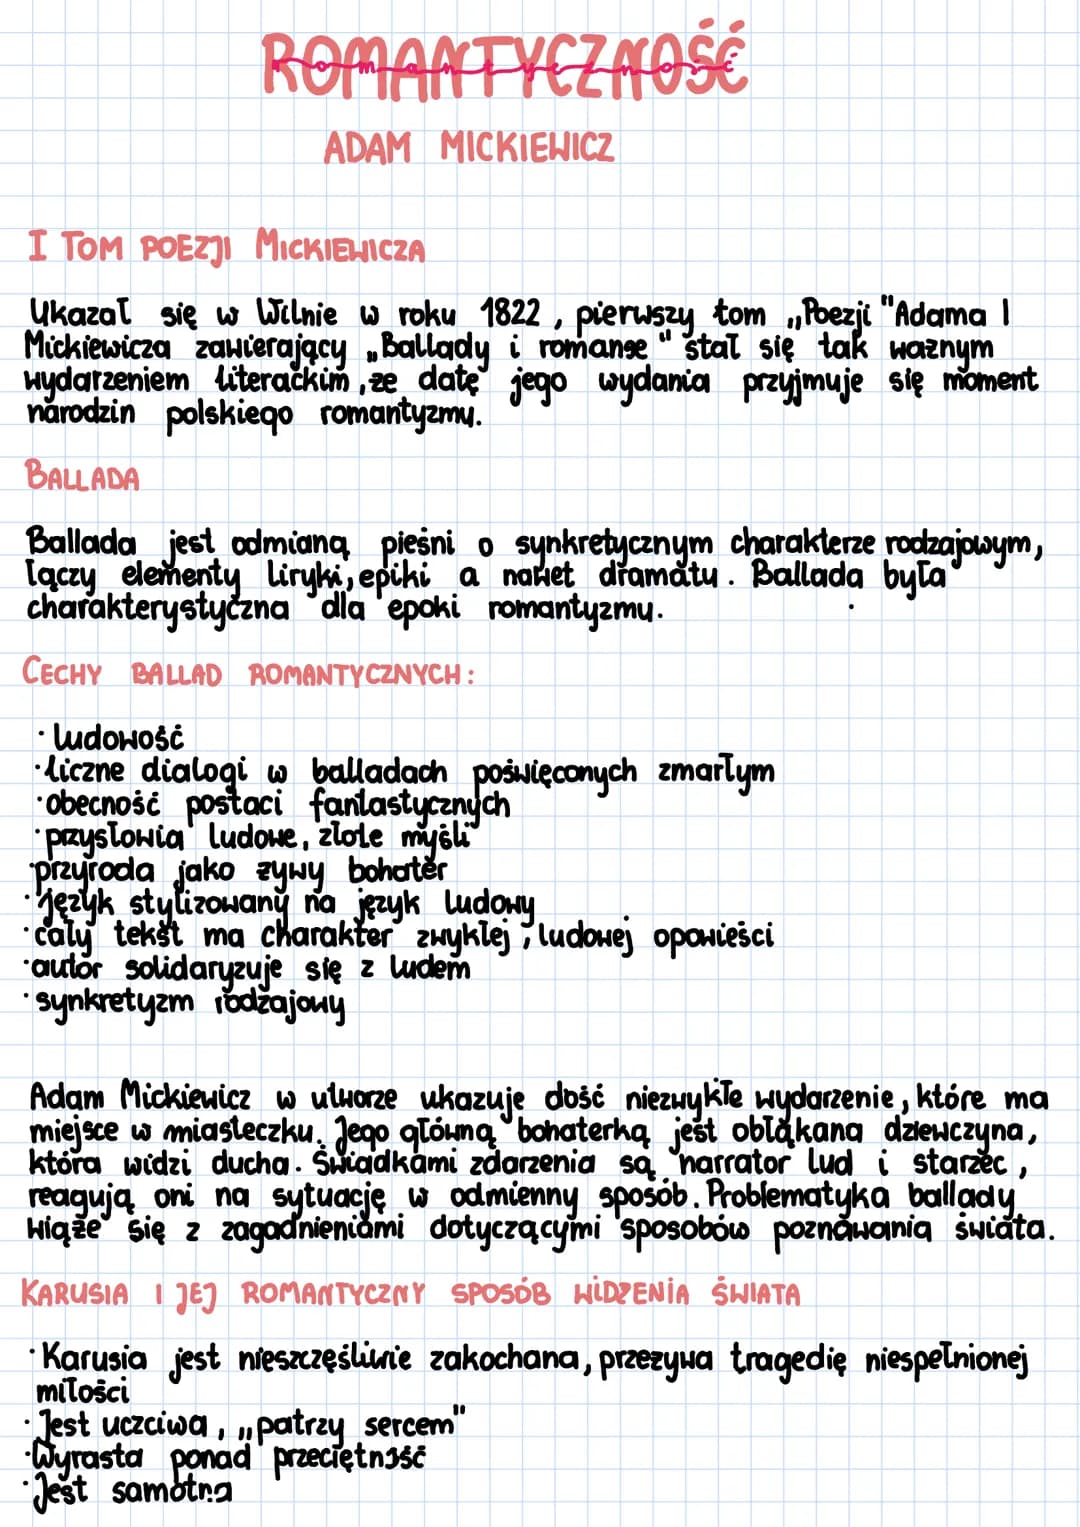 ROMANTYCZNOŚĆ
romantyczność
ADAM MICKIEWICZ
I TOM POEZJI MICKIEWICZA
Ukazał się w Wilnie w roku 1822, pierwszy tom „Poezji "Adama I
Mickiewicza zawierający „Ballady i romanse" stał się tak ważnym
wydarzeniem literackim, że datę jego wydania przyjmuje się moment
narodzin polskiego romantyzmu.
BALLADA
Ballada jest odmianą pieśni o synkretycznym charakterze rodzajowym,
łączy elementy liryki, epiki a nawet dramatu. Ballada była
charakterystyczna dla epoki romantyzmu.
CECHY BALLAD ROMANTYCZNYCH:
· ludowość
· liczne dialogi w balladach poświęconych zmarłym
· obecność postaci fantastycznych
· przysłowia ludowe, złote myśli
· przyroda jako żywy bohater
· język stylizowany na język ludowy
· cały tekst ma charakter zwykłej, ludowej opowieści
· autor solidaryzuje się z ludem
· synkretyzm rodzajowy
Adam Mickiewicz w utworze ukazuje dość niezwykłe wydarzenie, które ma
miejsce w miasteczku. Jego główną bohaterką jest obłąkana dziewczyna,
która widzi ducha. Świadkami zdarzenia są narrator lud i starzec,
reagują oni na sytuację w odmienny sposób. Problematyka ballady
wiąże się z zagadnieniami dotyczącymi sposobów poznawania świata.
KARUSIA I JEJ ROMANTYCZNY SPOSÓB WIDZENIA ŚWIATA
· Karusia jest nieszczęśliwie zakochana, przeżywa tragedię niespełnionej
miłości
· Jest uczciwa, „patrzy sercem"
· Wyrasta ponad przeciętność
· Jest samotna